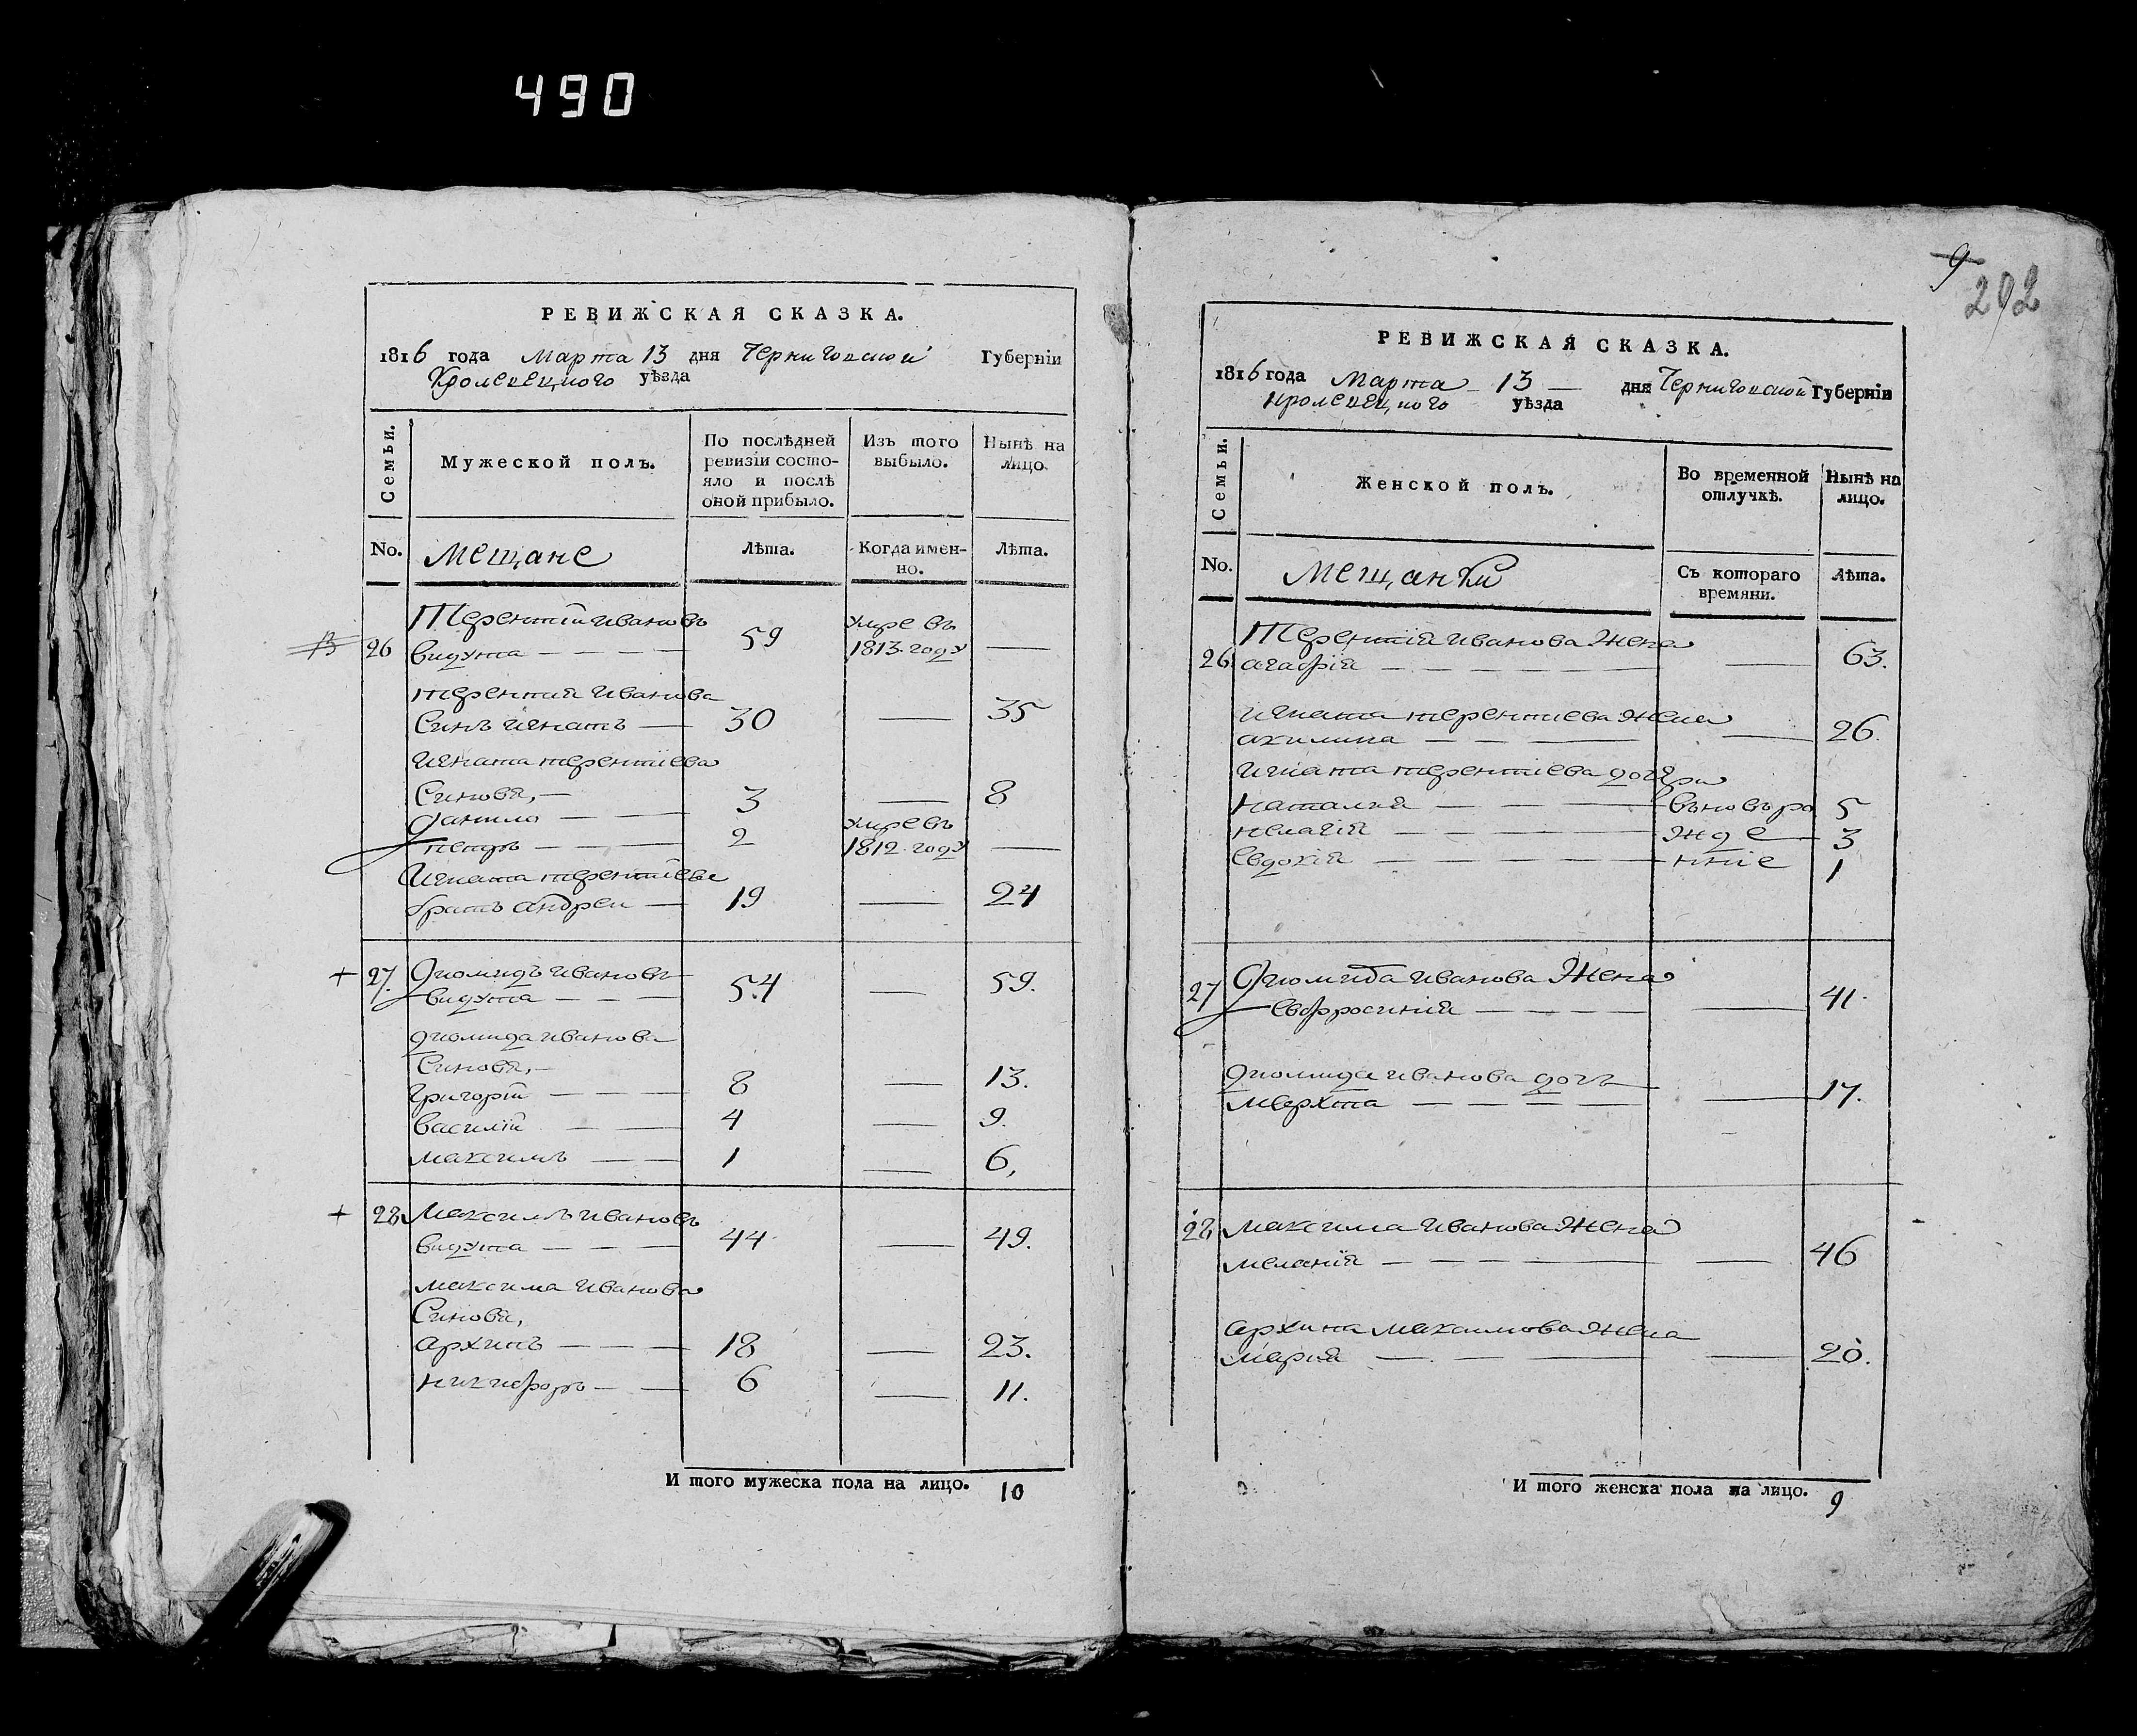 490
РЕВИЖСКАЯ СКАЗКА.
1816 года Марта 13 дня Черниговской Губерніи
Кролевецкого уѣзда
Семьи.
Мужеской полъ.
По послѣдней ревизіи состо-
яло и послѣ
оной прибыло.
Изъ того
выбыло.
Нынѣ на
лицо.
No.
Мещане
Лѣта.
Когда имен-
но.
Лѣта.
Терентій Ивановъ
26 Видута 59 умре въ 1813 году
Терентия Иванова
Синъ Игнатъ 30 35
Игната Терентіева
Синовя,
Данило 3 8
2 умре въ 1812 году
Игната Терентіева
братъ Андреи 19 24
27. Диомидъ Ивановъ
Видута 54 59.
Диомида Иванова
Синовя,
Григорій 8 13.
Василій 4 9.
Максимъ 1 6,
28 Максимъ Ивановъ
Видута 44 49.
Максима Иванова
Синовя,
Архипъ 18 23.
Никифоръ 6 11.
И того мужеска пола на лицо. 10
9
202
РЕВИЖСКАЯ СКАЗКА.
1816 года Марта 13 дня Черниговской Губерніи
Кролевецкого уѣзда
Семьи.
Женской полъ.
Во временной
отлучкѣ.
Нынѣ на
лицо.
No.
Мещанки
Съ котораго
времяни.
Лѣта.
Терентія Иванова Жена
26 Агафія 63.
Игната Терентиева Жена
Акилина 26.
Игната Терентіева дочери
Наталия вновъ ро 5
Пелагія жде 3
Евдокія нніе 1
27 Диомида Иванова Жена
Евфросинія 41.
Диомида Иванова дочъ
Марфта 17.
28 Максима Иванова Жена
Меланія 46
Архипа Максимова Жена
Мария 20.
И того женска пола на лицо. 9